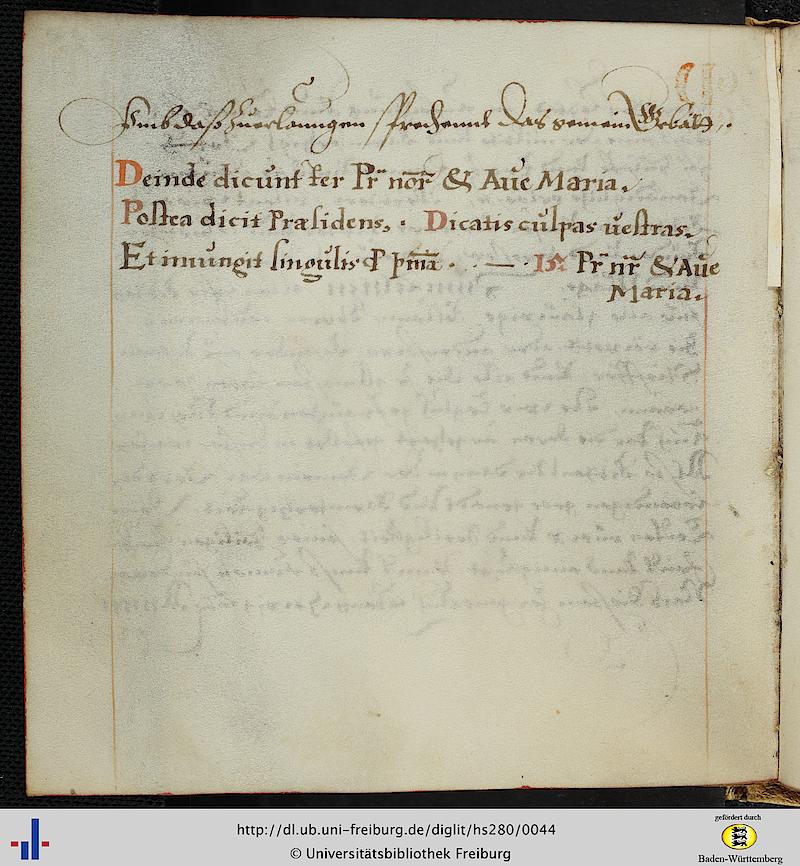 Umb daß Zuerlanngen sprechennt das gemein Gebätt.
Deinde dicunt ter Pr̃ nõr̃ & Aue Maria.
Postea dicit Præsidens. Dicatis culpas uestras.
Et iniungit singulis P pnia . — . 15. Pr̃ nr̃ & Aue
Maria.
http://dl.ub.uni-freiburg.de/diglit/hs280/0044
© Universitätsbibliothek Freiburg
gefördert durch
Baden-Württemberg